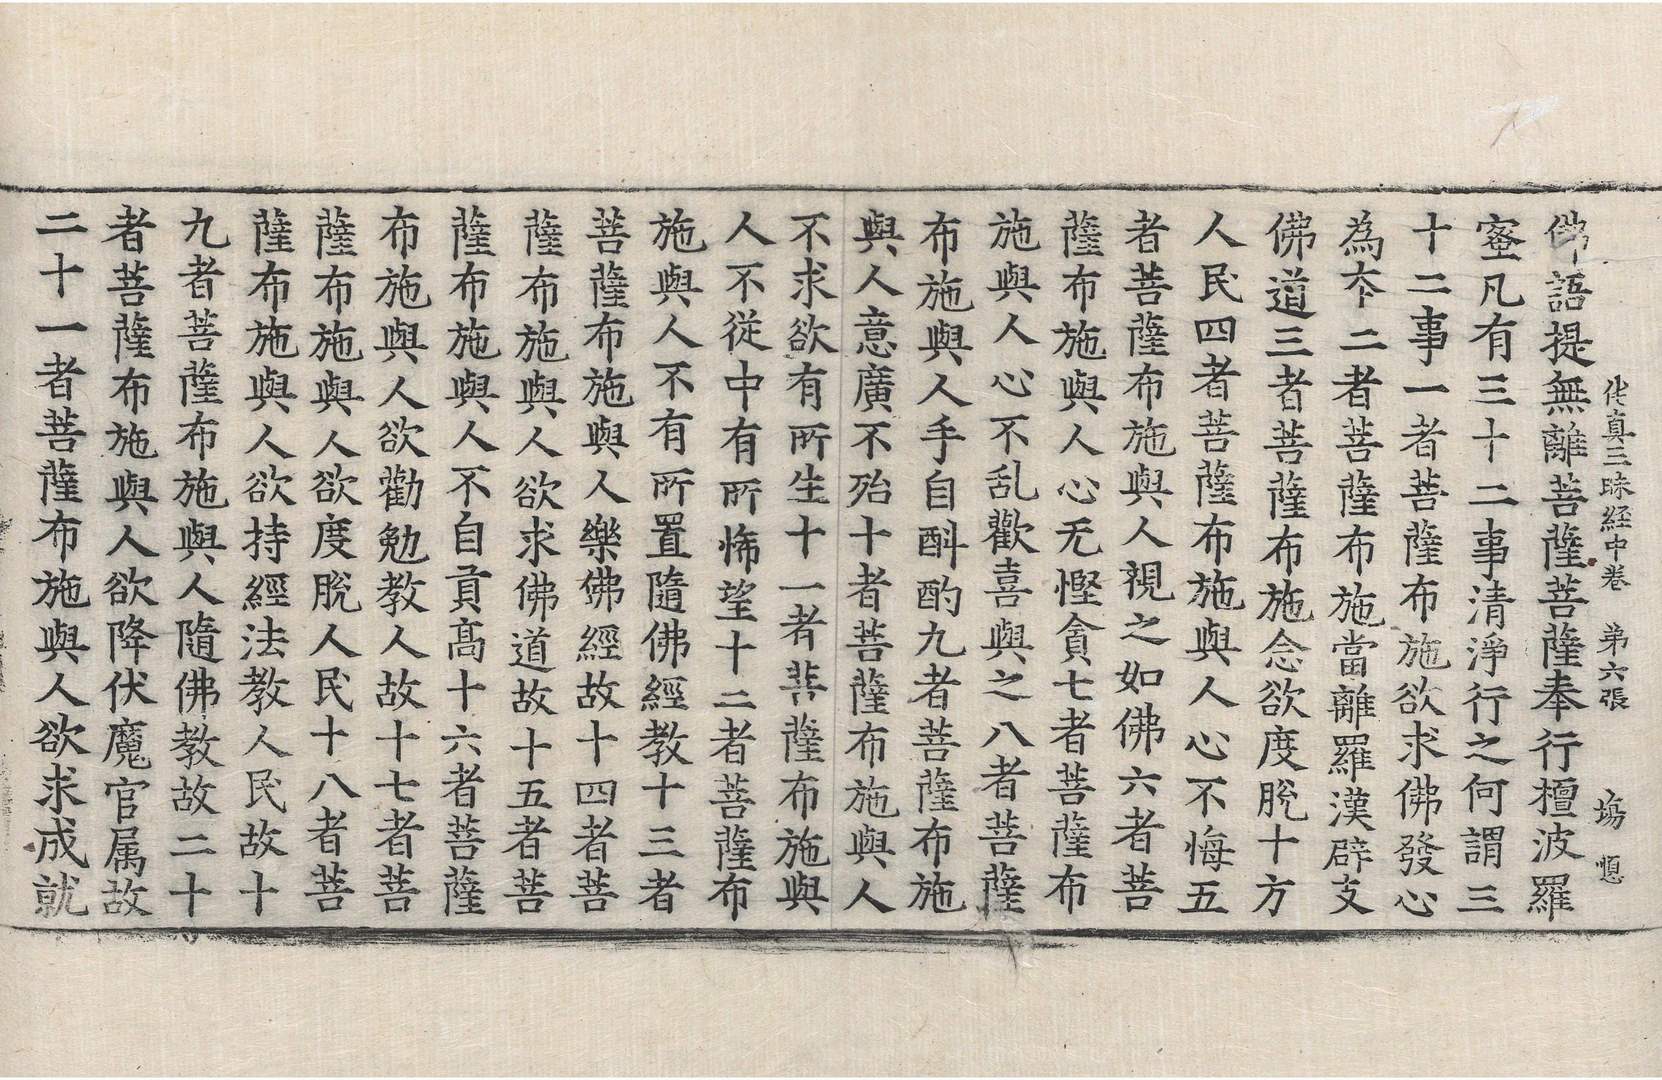 佛語提無離菩薩菩薩奉行檀波羅
伅真三昧経中卷 弟六張 塲 㥽
蜜凡有三十二事清淨行之何謂三
十二事一者菩薩布施欲求佛發心
為夲二者菩薩布施當離羅漢辟支
佛道三者菩薩布施念欲度脫十方
人民四者菩薩布施與人心不悔五
者菩薩布施與人視之如佛六者菩
薩布施與人心无慳貪七者菩薩布
施與人心不乱歡喜與之八者菩薩
布施與人手自斟酌九者菩薩布施
與人意廣不殆十者菩薩布施與人
不求欲有所生十一者菩薩布施與
人不從中有所悕望十二者菩薩布
施與人不有所置隨佛經教十三者
菩薩布施與人樂佛經故十四者菩
薩布施與人欲求佛道故十五者菩
薩布施與人不自貢高十六者菩薩
布施與人欲勸勉教人故十七者菩
薩布施與人欲度脫人民十八者菩
薩布施與人欲持經法教人民故十
九者菩薩布施與人隨佛教故二十
者菩薩布施與人欲降伏魔官属故
二十一者菩薩布施與人欲求成就